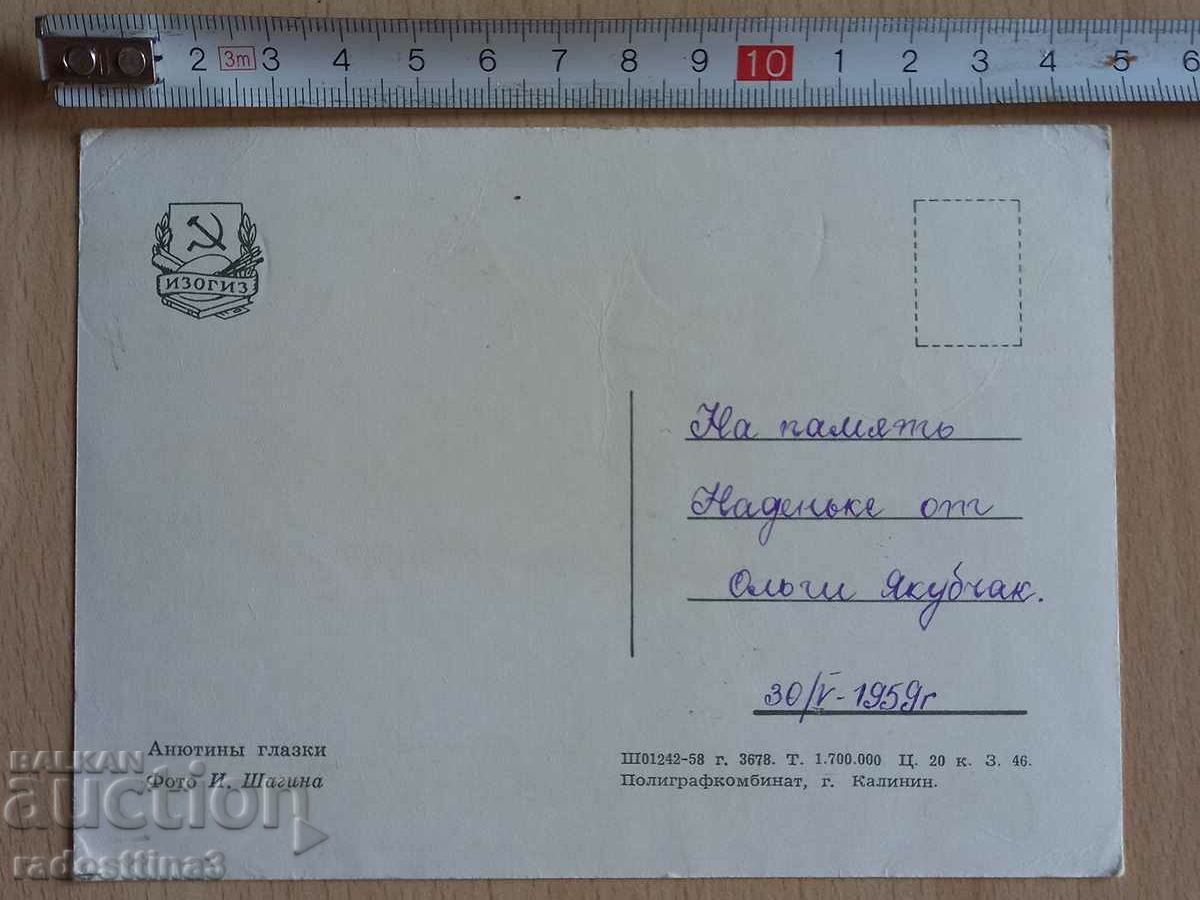 2 3m 3 4 5 6 7 8 9 10 1 2 3 4 5 6
ИЗОГИЗ
На память
Наденьке от
Ольги Якубчак.
30/V-1959г
Анютины глазки
Фото И. Шагина
Ш01242-58 г. 3678. Т. 1.700.000 Ц. 20 к. З. 46.
Полиграфкомбинат, г. Калинин.
BALKAN
auction
radosttina3